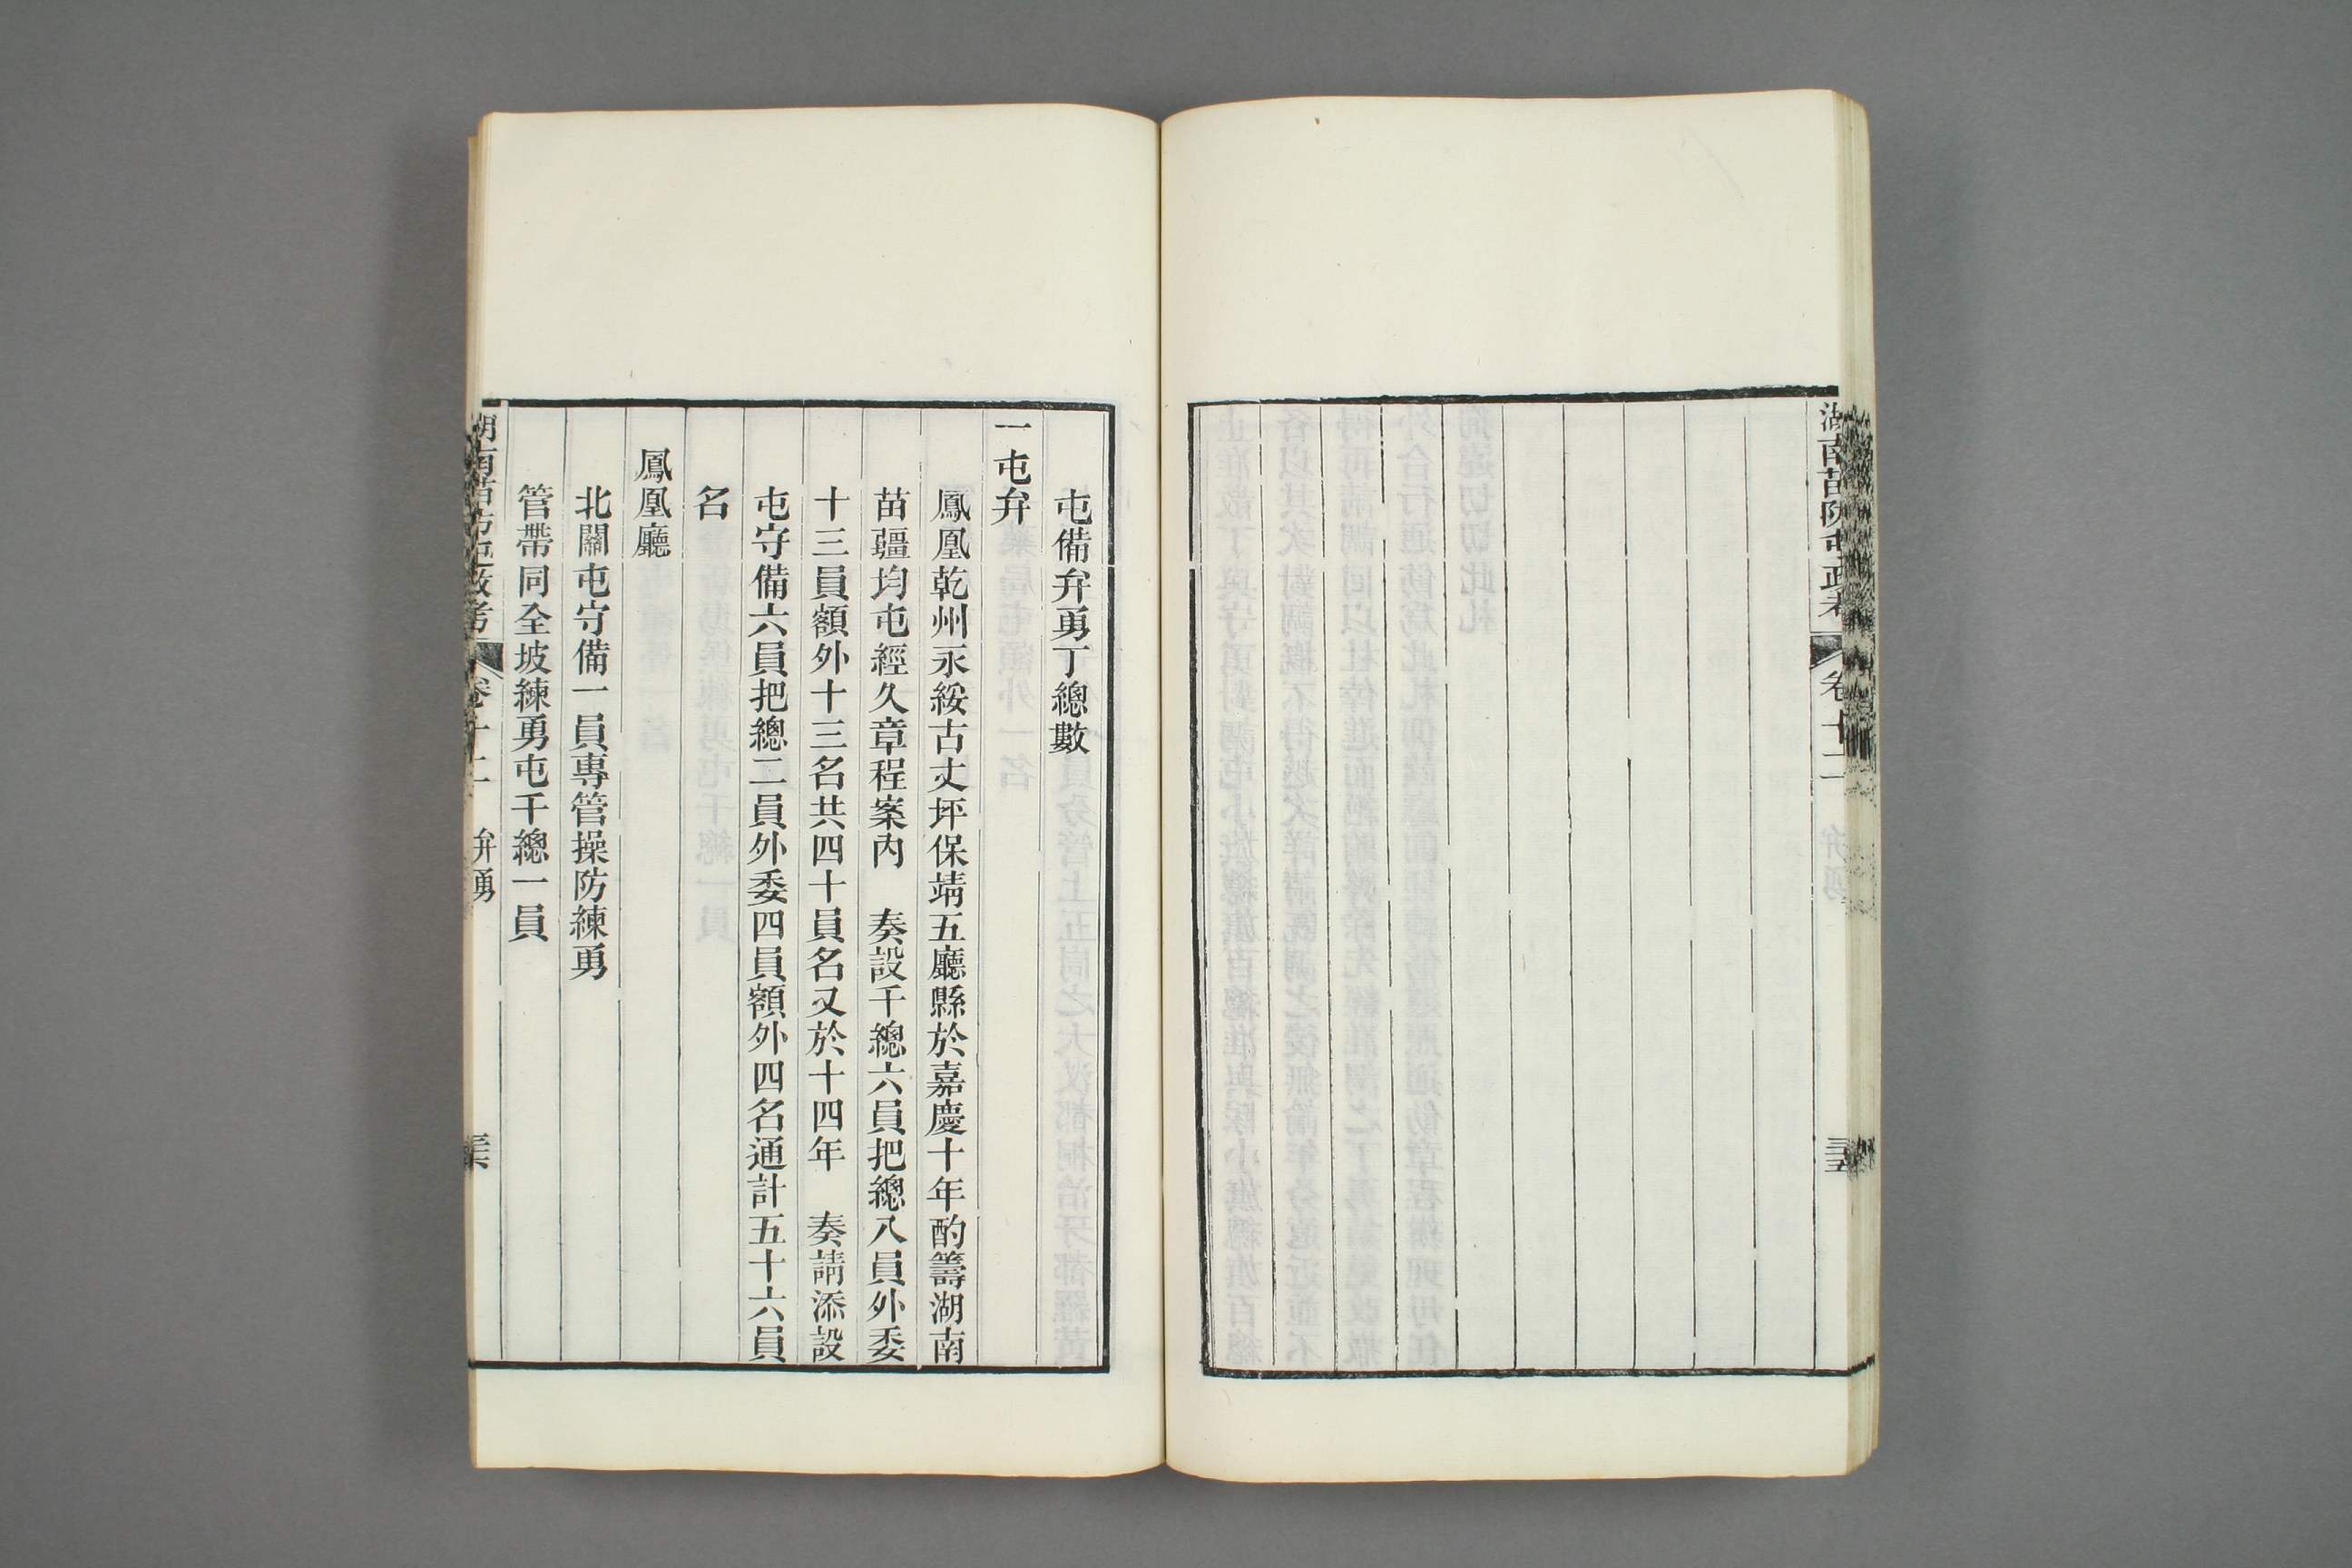 湖南苗防屯政考 卷十二 弁勇 三五
屯備弁勇丁總數
一屯弁
鳳凰乾州永綏古丈坪保靖五廳縣於嘉慶十年酌籌湖南
苗疆均屯經久章程案內 奏設千總六員把總八員外委
十三員額外十三名共四十員名又於十四年 奏請添設
屯守備六員把總二員外委四員額外四名通計五十六員
名
鳳凰廳
北關屯守備一員專管操防練勇
管帶同全坡練勇屯千總一員
湖南苗防屯政考 卷十二 弁勇 三六